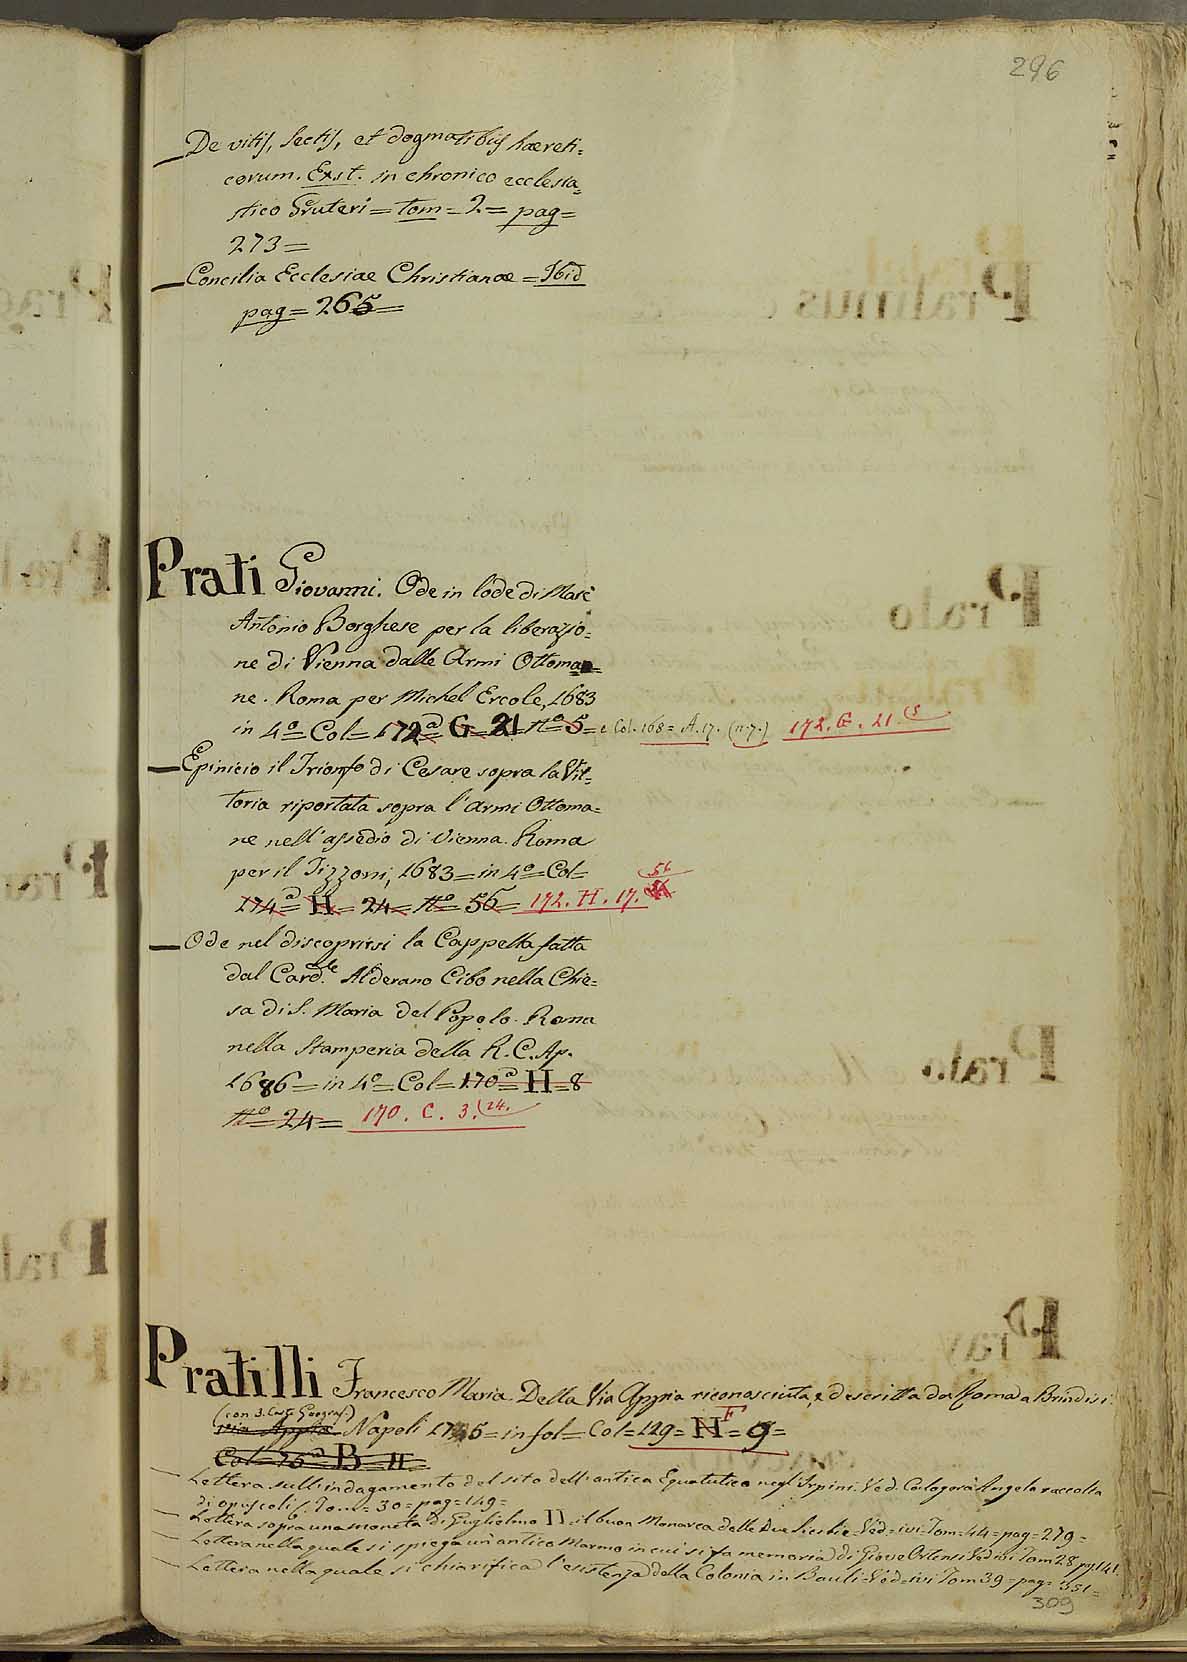 296
De vitis, Sectis, et dogmatibus haereti=
corum. Exst. in chronico ecclesia=
stico Gruteri = tom = 2 = pag =
273 =
Concilia Ecclesiae Christianae = Ibid
pag = 265 =
Prati Giovanni. Ode in lode di Marc'
Antonio Borghese per la liberazio=
ne di Vienna dalle Armi Ottoma=
ne. Roma per Michel Ercole, 1683
in 4º = Col = 172ª = G = 21 = Nº 5 = e Col. 168 = A. 17. (n. 7.) 172. G. 21. (5
Epinicio il Trionfo di Cesare sopra la Vit=
toria riportata sopra l'Armi Ottoma=
ne nell'assedio di Vienna. Roma
per il Tizzoni, 1683 = in 4º = Col =
174ª = H = 24 = Nº 56 = 172. H. 17. 56
Ode nel discoprirsi la Cappella fatta
dal Card.le Alderano Cibo nella Chie=
sa di S. Maria del Popolo. Roma
nella Stamperia della R. C. Ap.
1686 = in 4º = Col = 170ª = H = 8
Nº 24 = 170. C. 3. (24.
Pratilli Francesco Maria. Della Via Appia riconosciuta, e descritta da Roma a Brindisi.
(con 3. Carte Geograf.)
Via Appia Napoli 1745 = in fol = Col = 129 = N F = 9 =
Col = 75ª = B = 11 =
Lettera sull'indagamento del sito dell'antica Equotutico negl'Irpini. Ved. Calogorà Angelo raccolta
di opuscoli. Tom = 30 = pag = 149 =
Lettera sopra una moneta di Guglielmo II il buon Monarca delle Due Sicilie = Ved = ivi = Tom = 44 = pag = 279 =
Lettera nella quale si spiega un antico Marmo in cui si fa memoria di Giove Ortensi Ved ivi Tom 28 pag. 141.
Lettera nella quale si chiarifica l'esistenza della Colonia in Bauli = Ved = ivi Tom 39 = pag = 351 =
309